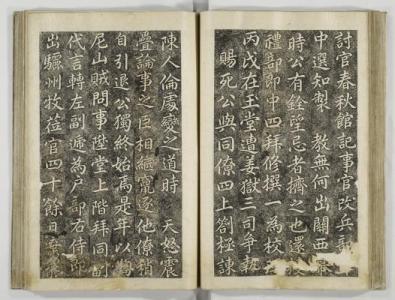 討官春秋館記事官改兵部
中選知製 教無何出關西
時公有銓望忌者擠之也還
禮部郎中四拜修撰一爲校
丙戌在玉堂遭姜獄三司爭執
賜死公與同僚四上劄極諫
陳人倫處變之道時 天怒震
疊論事之臣相繼竄逐他僚稍
自引退公獨終始焉是年以
尼山賊問事陞堂上階拜同副
代言轉左副遞爲戶部右侍郎
出驪州牧莅官四十餘日